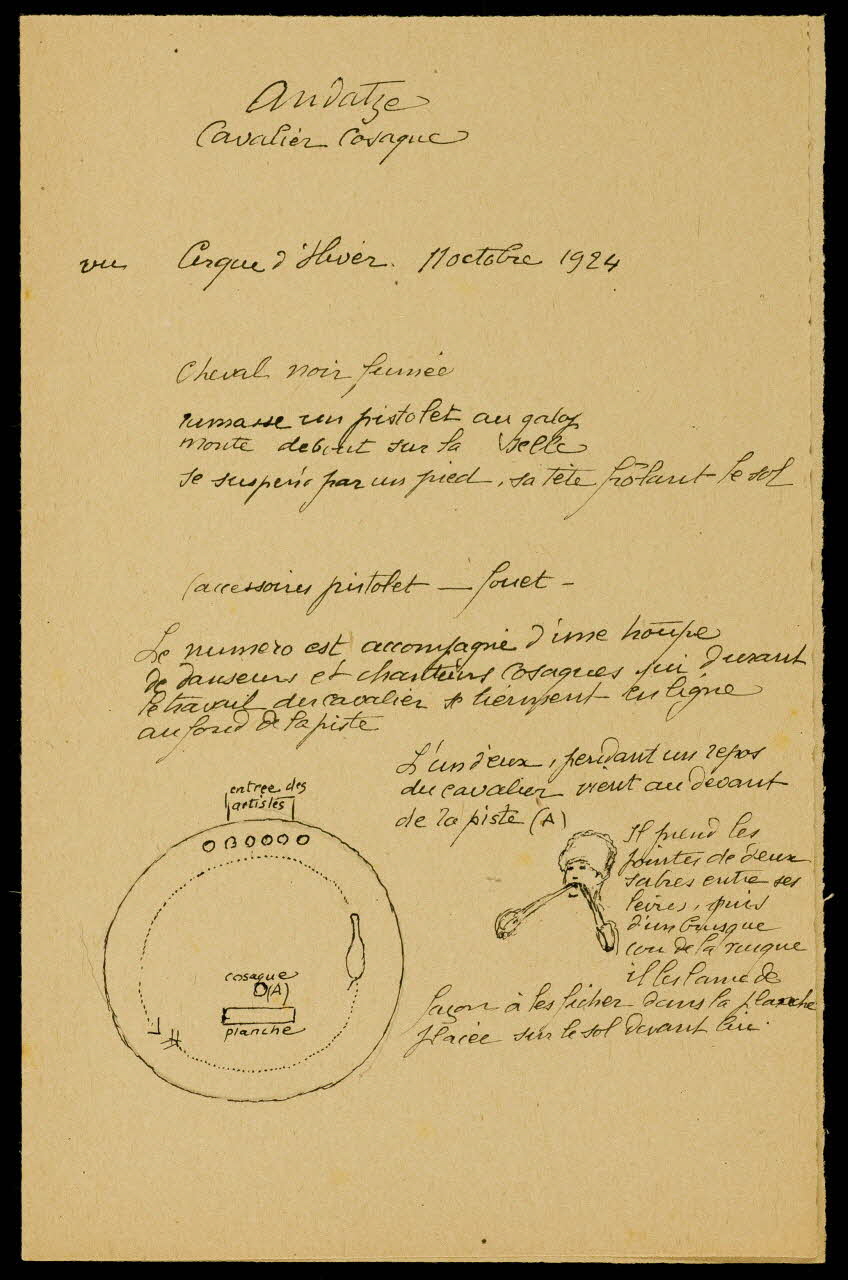 Andatze
Cavalier Cosaque
vu Cirque d'Hiver. 11 octobre 1924
Cheval noir fumée
ramasse un pistolet au galop
monte debout sur la selle
se suspend par un pied, sa tête frôlant le sol
(accessoires pistolet — fouet -
Le numero est accompagné d'une troupe
de danseurs et chanteurs cosaques qui durant
le travail du cavalier se tiennent en ligne
au fond de la piste
L'un d'eux, pendant un repos
du cavalier vient au devant
de la piste (A)
Il prend les
pointes de deux
sabres entre ses
levres, puis
d'un brusque
cou de la nuque
il les lance de
façon à les ficher dans la planche
placée sur le sol devant lui.
entree des
artistes
cosaque
(A)
planche